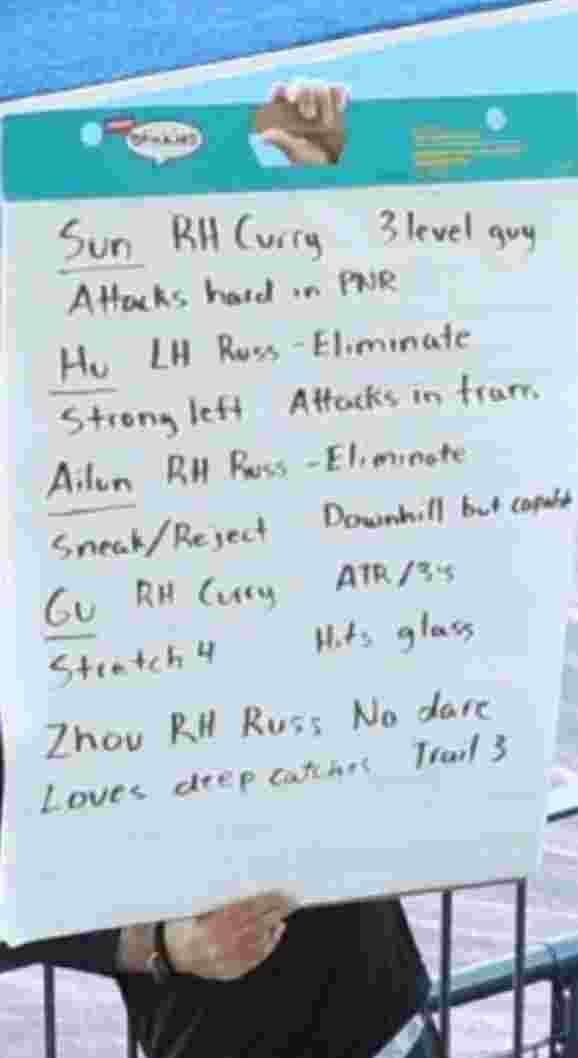 Sun RH Curry 3 level guy
Attacks hard in PNR
Hu LH Russ - Eliminate
Strong left Attacks in tran.
Ailun RH Russ - Eliminate
Sneak/Reject Downhill but capable
Gu RH Curry ATR/3's
Stretch 4 Hits glass
Zhou RH Russ No dare
Loves deep catches Trail 3